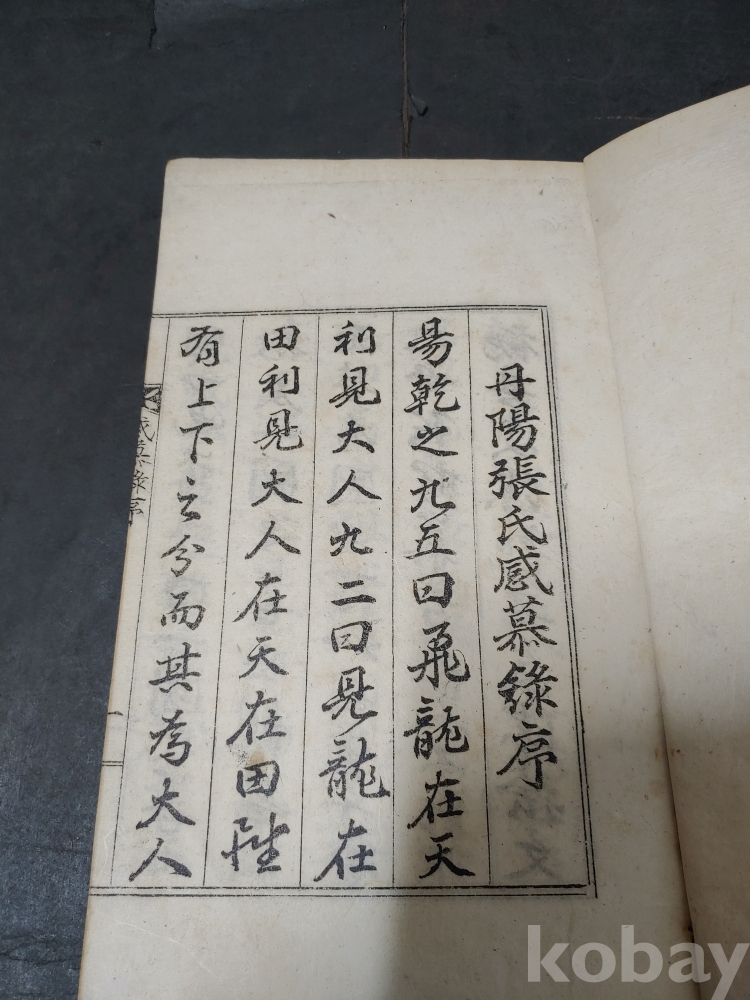 丹陽張氏感慕錄序
易乾之九五曰飛龍在天
利見大人九二曰見龍在
田利見大人在天在田雖
有上下之分而其為大人
感慕錄序
一
kobay